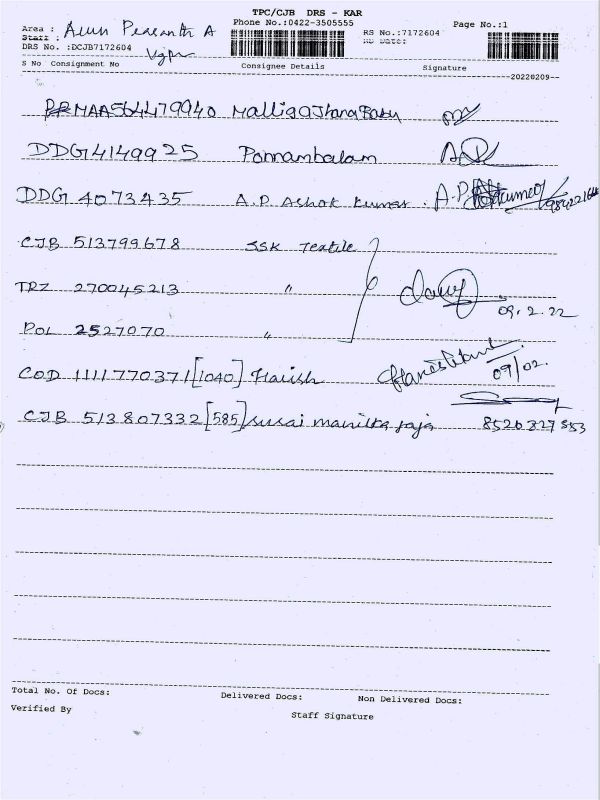 TPC/CJB DRS - KAR
Area : Arun Prasanth A Phone No.:0422-3505555 Page No.:1
Staff : RS No.:7172604
DRS No. :DCJB7172604 RS Date:
S No Consignment No Consignee Details Signature
20220209
MAA564479940
DDG4149925 Ponnambalam
DDG 4073435 A.P. Ashok Kumar.
CJB 513799678 SSK Textile
TRZ 270045213 "
09.2.22
POL 2527070 "
COD 1111770371[1040] Harish 09/02.
CJB 513807332[585] susai manikka raja 8526327853
Total No. Of Docs: Delivered Docs: Non Delivered Docs:
Verified By Staff Signature